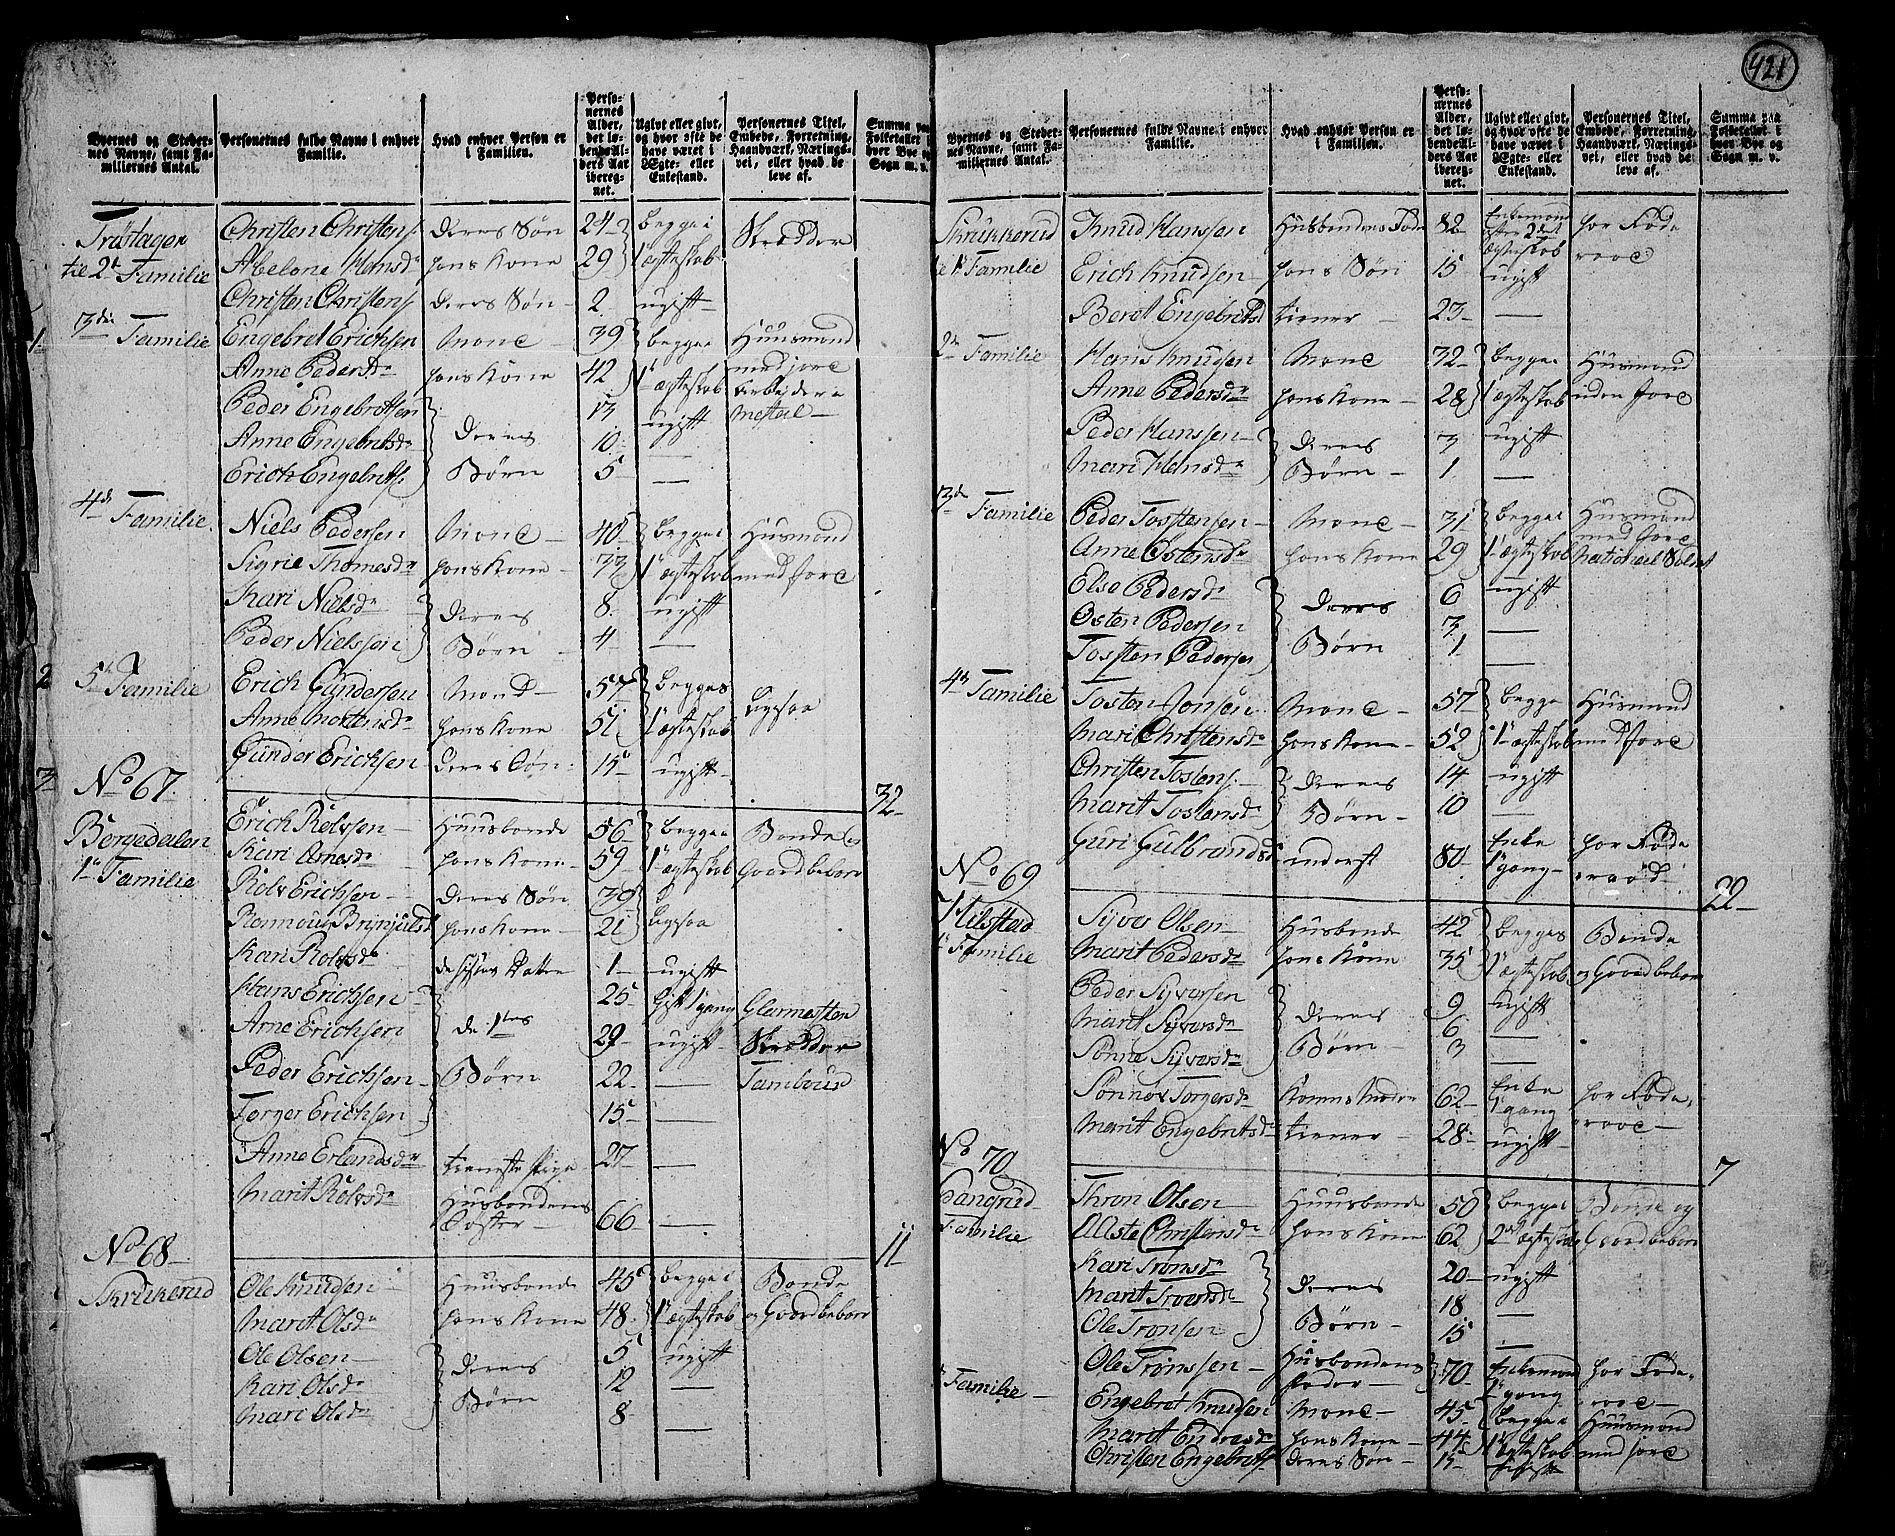 421
Byernes og Stedernes Navne, samt Familiernes Antal.
Personernes fulde Navne i enhver Familie.
Hvad enhver Person er i Familien.
Personernes Alder, det løbende Alders Aar iberegnet.
Ugivt eller givt, og hvor ofte de have været i Ægte- eller Enkestand.
Personernes Titel, Embede, Forretning, Haandværk, Næringsvei, eller hvad de leve af.
Summa paa Folketallet i hver Bye og Sogn m. v.
til 2d Familie
Christen Christens. deres Søn 24 begge i Skrædder
Abelone Hansd. hans Kone 29 1te ægteskab
Christen Christens. deres Søn 2 ugift
3die Familie Engebret Erichsen Mand 39 begge i Huusmand
Anne Pedersd. hans Kone 42 1te ægteskab med jord
Peder Engebretsen 13 ugift
Anne Engebretsd. deres 10 —
Erich Engebrets. Børn 5 —
4de Familie Niels Pedersen Mand 40 begge i Husmand
Sigrie Thomesd. hans Kone 33 1te ægteskab med jord
Kari Nielsd. deres 8 ugift
Peder Nielssen Børn 4 —
5te Familie Erich Gundersen Mand 57 begge i ligesaa
Anne Mortensd. hans Kone 51 1te ægteskab
Gunder Erichsen deres Søn 15 ugift
No 67 32
Bergedalen Erich Rolvsen Huusbonde 56 begge i Bonde og
1te Familie Kari Arnesd. hans Kone 59 1te ægteskab Gaardbeboer
Rolv Erichsen deres Søn 39
hans Kone 21 ligesaa
Kari Rolvsd. 1 ugift
Hans Erichsen 25 gift 1 gang Glarmester
Arne Erichsen de 1tes 29 ugift Skrædder
Peder Erichsen Børn 22 — Tambour
Torger Erichsen 15 —
Anne Erlandsd. tieneste pige 27 —
Marit Rolvsd. Husbondens Søster 66 —
No 68 11
Skrukerud Ole Knudsen Huusbonde 45 begge i Bonde
Marit Olsd. hans Kone 48 1te ægteskab og Gaardbeboer
Ole Olsen deres 5 ugift
Kari Olsd. Børn 12 —
Mari Olsd. 8 —
Byernes og Stedernes Navne, samt Familiernes Antal.
Personernes fulde Navne i enhver Familie.
Hvad enhver Person er i Familien.
Personernes Alder, det løbende Alders Aar iberegnet.
Ugivt eller givt, og hvor ofte de have været i Ægte- eller Enkestand.
Personernes Titel, Embede, Forretning, Haandværk, Næringsvei, eller hvad de leve af.
Summa paa Folketallet i hver Bye og Sogn m. v.
Skrukkerud Knud Hanssen Husbondens Fader 82 Enkemand efter 2det ægteskab har Føderaad
til 1te Familie Erich Knudsen hans Søn 15 ugift
Beret Engebretsd. tiener 23 —
2de Familie Hans Knudsen Mand 32 begge i Husmand
Anne Pedersd. hans Kone 28 1te ægteskab uden jord
Peder Hanssen deres 3 ugift
Mari Hansd. Børn 1 —
3de Familie Peder Tostensen Mand 31 begge i Husmand med jord
Anne Ostensd. hans Kone 29 1te ægteskab National Soldat
Else Pedersd. deres 6 ugift
Osten Pedersen Børn 3 —
Tossten Pedersen 1 —
4de Familie Tosten Jonsen Mand 57 begge i Husmand
Mari Christensd. hans Kone 52 1te ægteskab med jord
Christen Tostens. deres 14 ugift
Marit Tostensd. Børn 10 —
Guri Gulbrandsd. inderst 80 Enke 1te gang har Føderaad
No 69 22
Syver Olsen Husbonde 42 begge i Bonde
1te Familie Marit Pedersd. hans Kone 35 1te ægteskab og Gaardbeboer
Peder Syversen 9 ugift
Marit Syversd. deres 6 —
Sønne Syversd. Børn 3 —
Sønnov Torgersd. Konens Moder 62 Enke 1te gang har Føderaad
Marit Engebretsd. tiener 28 ugift
No 70 7
Thron Olsen Huusbonde 50 begge i Bonde og
Familie Christensd. hans Kone 62 2det ægteskab Gaardbeboer
Kari Tronsd. deres 20 ugift
Marit Tronsd. Børn 18 —
Ole Tronsen 15 —
Ole Tronssen Husbondens Fader 70 Enkemand 1te gang har Føderaad
Familie Engebret Knudsen Mand 45 begge i Huusmand
Marit Endresd. hans Kone 44 1te ægteskab med jord
Christen Engebrets. deres Søn 15 ugift